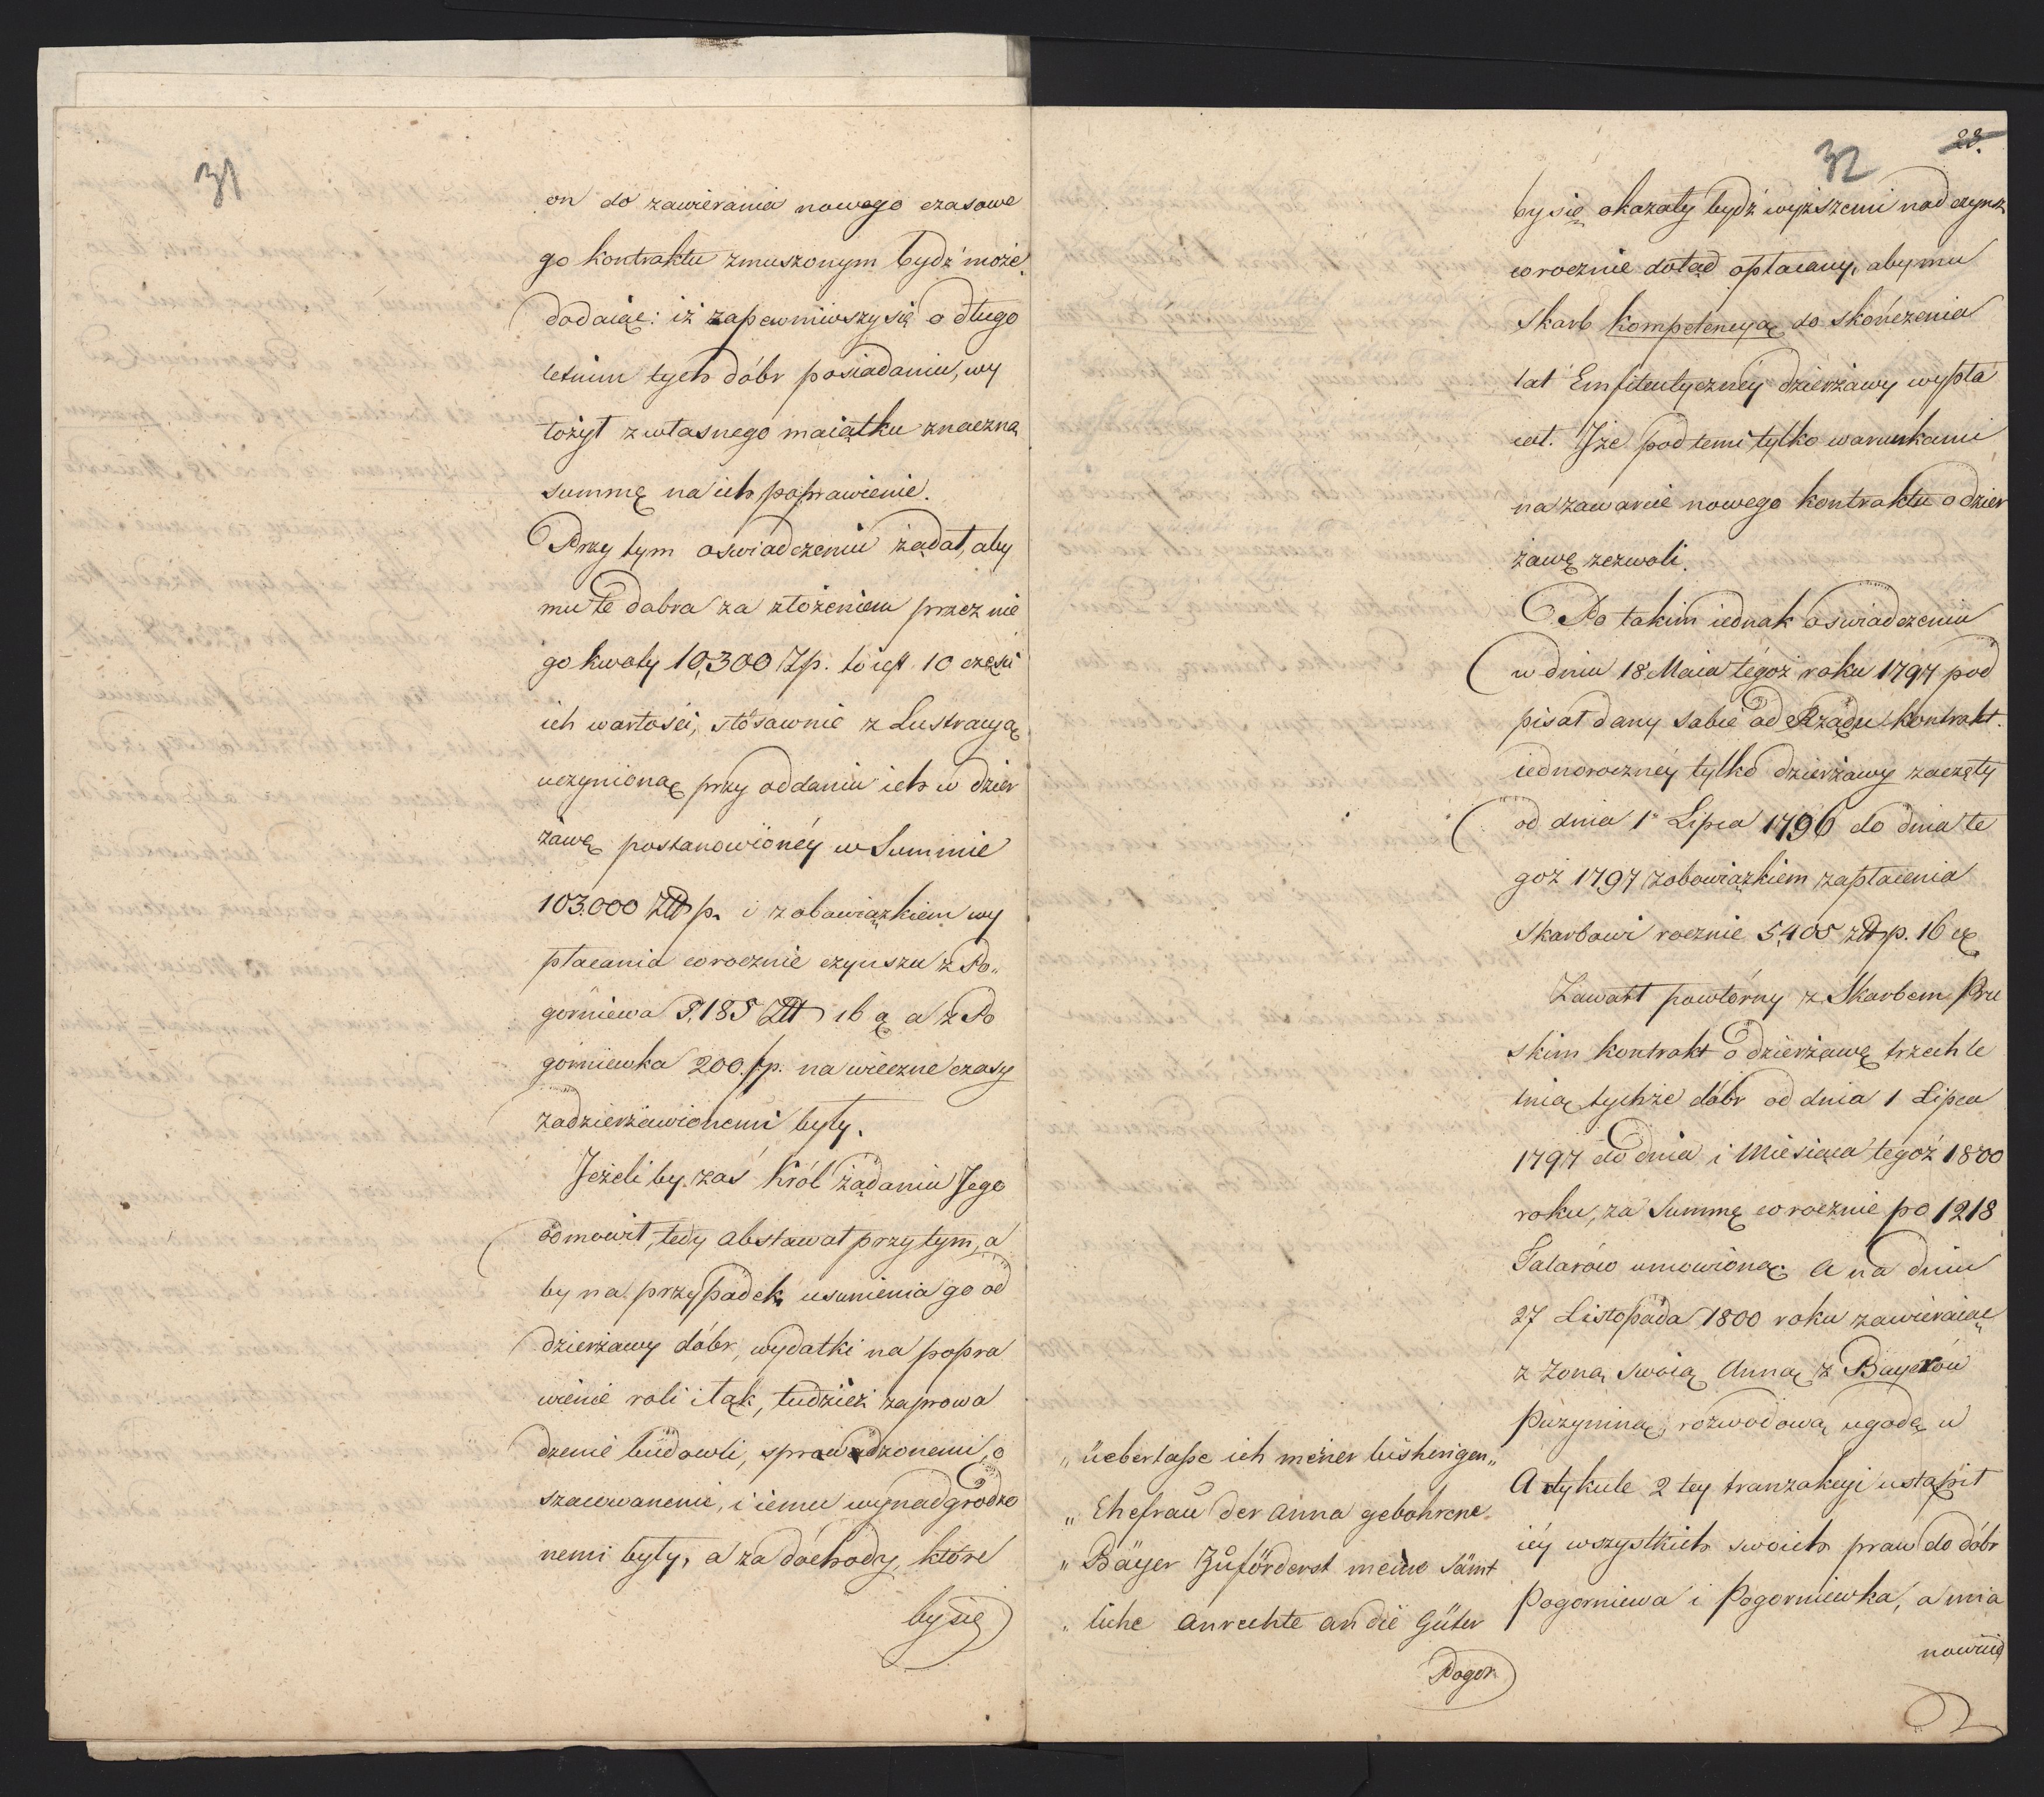 31
on do zawierania nowego czasowe
go kontraktu zmuszonym bydź może,
dodaiąc: iż zapewniwszy się o długo
letnim tych dóbr posiadaniu, wy
łożył z własnego maiątku znaczną
summę na ich poprawienie.
Przy tym oswiadczeniu żądał, aby
mu te dobra za złożeniem przez nie
go kwoty 10,300 Zp. to iest 10 części
ich wartości, stósownie z Lustracyą
uczynioną przy oddaniu ich w dzier
żawę postanowionéy w Summie
103.000 Złł p. i z obowiązkiem wy
płacania corocznie czynszu z Po„
górniewa 5,185 Złł 16 g a z Po
górniewka 200. fp. na wieczne czasy
zadzierżawionemi były.
Jeżeli by zaś Król żądaniu Jego
odmowił, tedy obstawał przy tym, a
by na przypadek usunienia go od
dzierżawy dóbr, wydatki na popra
wienie roli i łąk, tudzież zaprowa
dzenie budowli, sprawdzonemi, o
szacowanemi, i iemu wynadgrodzo
nemi były, a za dochody, które
by się
32
28.
by się okazały bydź wyższemi nad czynsz
corocznie dotąd opłacany, aby mu
Skarb kompetencyą do skończenia
lat Emfiteutycznéy dzierżawy wypła
cał. I że pod temi tylko warunkami
na zawarcie nowego kontraktu o dzier
żawę zezwoli.
Po takim iednak oswiadczeniu
w dniu 18 Maia tegoż roku 1797 pod
pisał dany sobie od Rządu kontrakt
iednorocznéy tylko dzierżawy zaczęty
od dnia 1° Lipca 1796 do dnia te
goż 1797 z obowiązkiem zapłacenia
Skarbowi rocznie 5,405 złł p. 16 cę
Zawarł powtórny z Skarbem Pru
skim kontrakt o dzierżawę trzechle
tnią tychże dóbr od dnia 1 Lipca
1797 do dnia i Miesiąca tegoż 1800
roku, za Summę corocznie po 1218
Talarów umowioną. A na dniu
27 Listopada 1800 roku zawieraiąc
z żoną swoią Anną z Bayerów
Puzyniną, rozwodową ugodę w
Artykule 2 tey tranzakcyi ustąpił
iéy wszystkich swoich praw do dóbr
Pogorniewa i Pogorniewka, a mia
nowicie
„ üeberlaße ich meiner bisherigen „
„ Ehefrau der Anna gebohrene
„ Bäyer Zuförderst meine Sämt
„ liche Anrechte an die Güter
Pogor